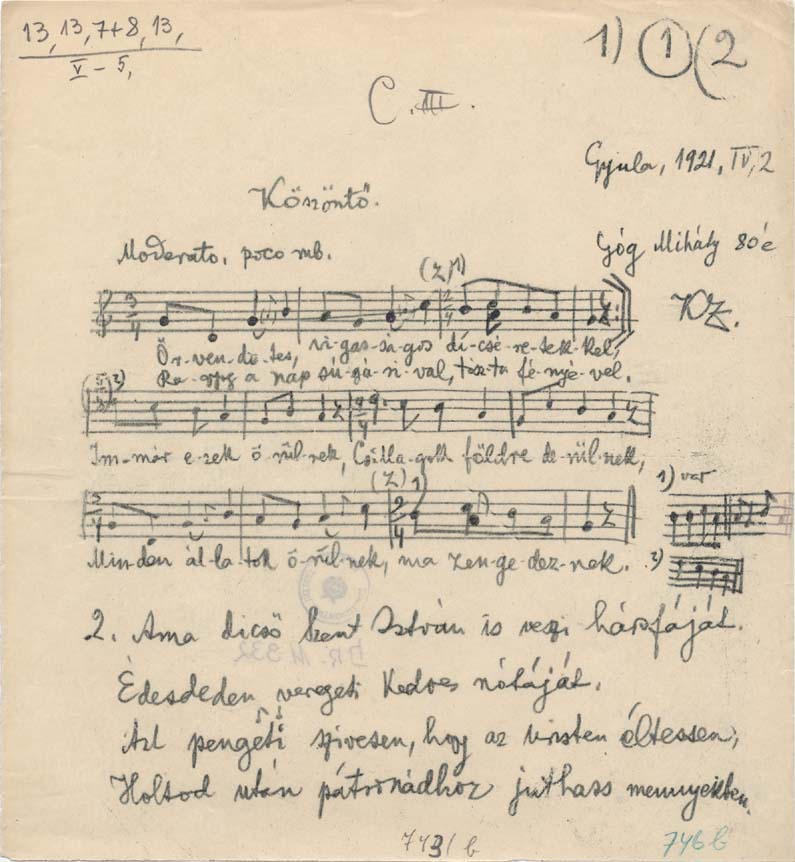 13, 13, 7+8, 13,
V – 5,
1) 1 (2
C. III.
Gyula, 1921, IV, 2
Köszöntő.
Moderato, poco rub.
Góg Mihály 80 é
KZ.
Ör-ven-de-tes, vi-gas-sá-gos dí-csé-re-tek-kel,
Ra-gyog a nap sú-gá-ri-val, tisz-ta fé-nyé-vel.
Im-már e-zek ö-rül-nek, Csilla-gok földre de-rül-nek,
Min-den ál-la-tok ö-rül-nek, ma zen-ge-dez-nek.
1) var
2)
2. Ama dicső Szent István is veszi hárfáját.
Édesdeden veregeti Kedves nótáját.
Azt pengeti szivesen, hogy az Uristen éltessen,
Holtod után pátronádhoz juthass mennyekben.
743/b
746 b